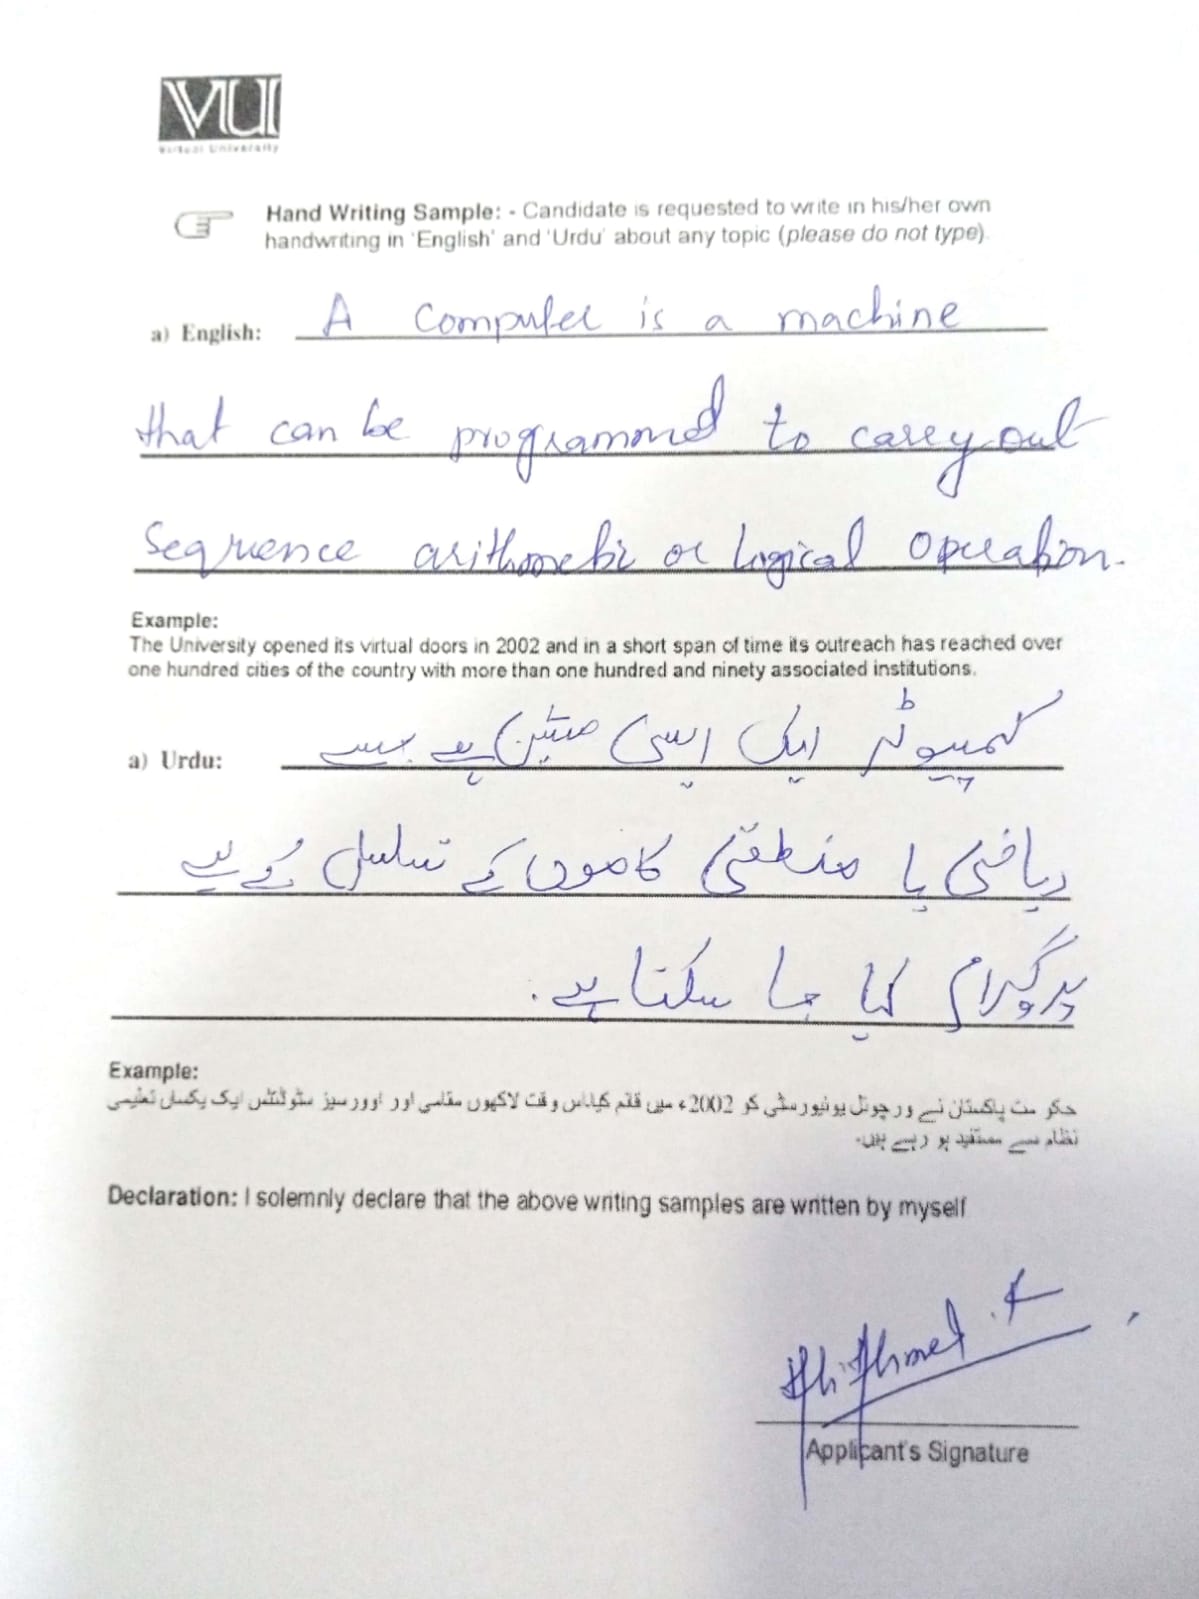 VU
Virtual University
Hand Writing Sample: - Candidate is requested to write in his/her own
handwriting in 'English' and 'Urdu' about any topic (please do not type).
a) English: A Computer is a machine
that can be programmed to carry out
Sequence arithmetic or Logical Operation.
Example:
The University opened its virtual doors in 2002 and in a short span of time its outreach has reached over
one hundred cities of the country with more than one hundred and ninety associated institutions.
a) Urdu: کمپیوٹر ایک ایسی مشین ہے جسے
ریاضی یا منطقی کاموں کے تسلسل کے لیے
پروگرام کیا جا سکتا ہے.
Example:
حکومت پاکستان نے ورچوئل یونیورسٹی کو 2002ء میں قائم کیا۔اس وقت لاکھوں مقامی اور اوورسیز سٹوڈنٹس ایک یکساں تعلیمی
نظام سے مستفید ہو رہے ہیں۔
Declaration: I solemnly declare that the above writing samples are written by myself
Applicant's Signature